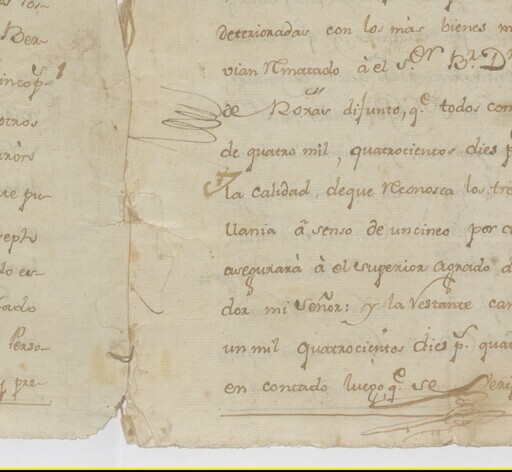 Ber-
incop.s
otros
ve pu-
septe
lo es-
tado
Perso-
y pre-
deterioradas con los más bienes m
vian Rmatado à el S.or B.r D.n
de Roxas difunto, q.e todos com
de quatro mil, quatrocientos dies p
la calidad, deque Reconosca los tre
llania â senso de uncinco por c
asegurarà à el superior agrado d
dor mi señor: y la Restante can
un mil quatrocientos dies p.s qua
en contado luego q.e se veri